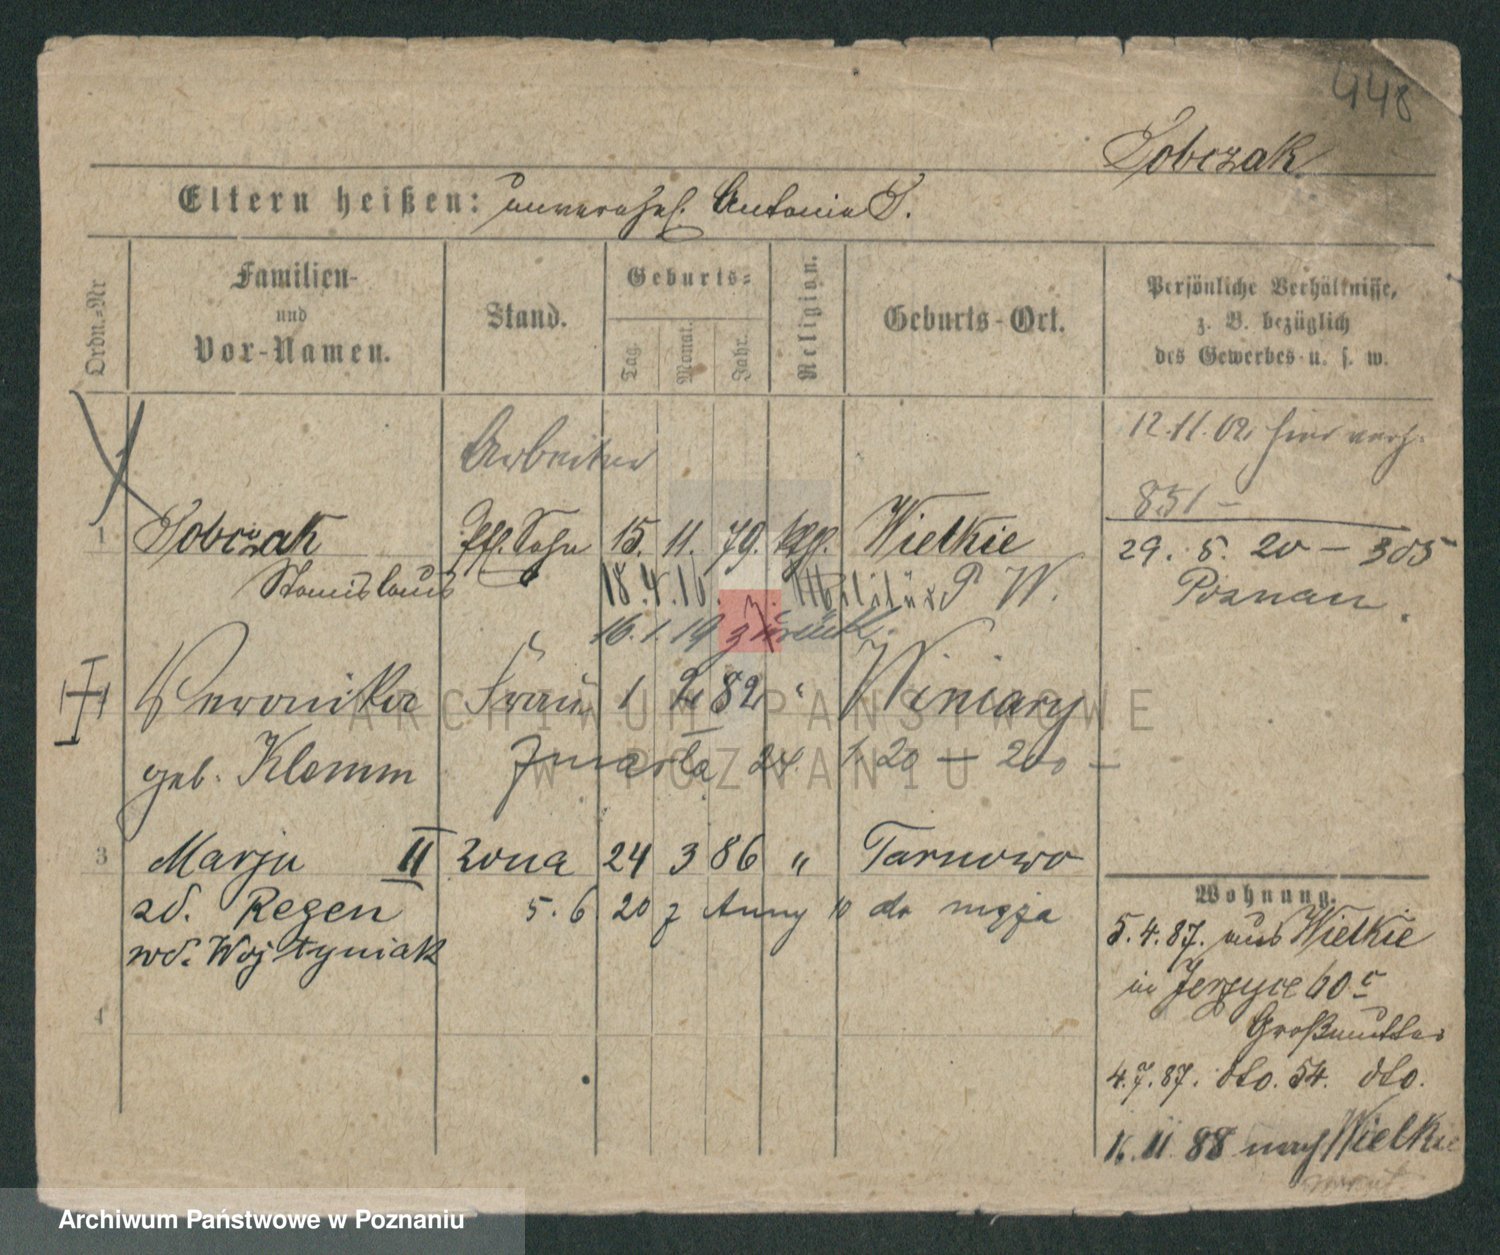 448
Sobczak
Eltern heißen: unverehel. Antonie S.
Ordn.-Nr
Familien-
und
Vor-Namen.
Stand.
Geburts-
Tag.
Monat.
Jahr.
Religion.
Geburts-Ort.
Persönliche Verhältnisse,
z. B. bezüglich
des Gewerbes u. s. w.
Arbeiter
12.11.02. hier verh.
851 -
1 Sobczak Pfl. Sohn 15. 11. 79. kth. Wielkie
Stanislaus
18.4.16. Militär P. W.
16.1.19 zurück
29. 5. 20 - 305
Poznan.
Veronika Frau 1 82 " Winiary
geb. Klemm Zmarła 24. 1. 20 - 200 -
3 Marja II żona 24 3 86 " Tarnowo
zd. Regen 5. 6 20 z Anny 10 do męża
wd. Wojtyniak
4
Wohnung.
5.4.87. aus Wielkie
in Jerzyce 60 c
Großmutter
4.7.87. dto. 54. dto.
11 88 nach Wielkie
ARCHIWUM PAŃSTWOWE
W POZNANIU
Archiwum Państwowe w Poznaniu